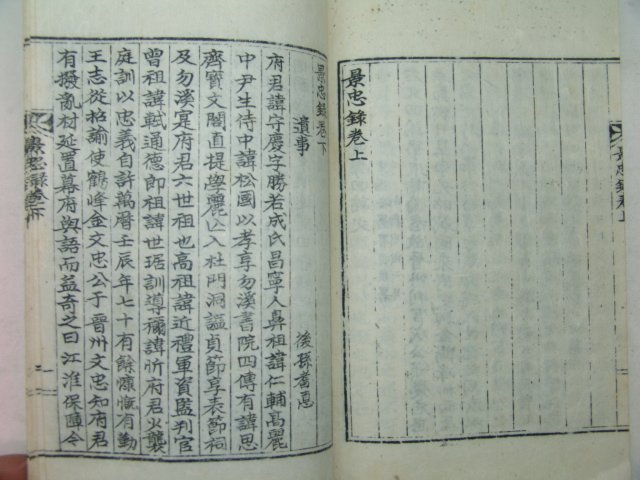 景忠錄卷上
景忠錄卷上
景忠錄卷下
遺事
後孫耆悳
府君諱守慶字勝若成氏昌寧人鼻祖諱仁輔高麗
中尹生侍中諱松國以孝享勿溪書院四傳有諱思
齊寶文閣直提學麗亡入杜門洞謚貞節享表節祠
及勿溪寔府君六世祖也高祖諱近禮軍資監判官
曾祖諱軾通德郞祖諱世琚訓導禰諱忻府君火襲
庭訓以忠義自許萬曆壬辰年七十有餘慷慨有勤
王志從招諭使鶴峰金文忠公于晉州文忠知府君
有撥亂材延置幕府與語而益奇之曰江淮保障今
景忠錄卷下
一